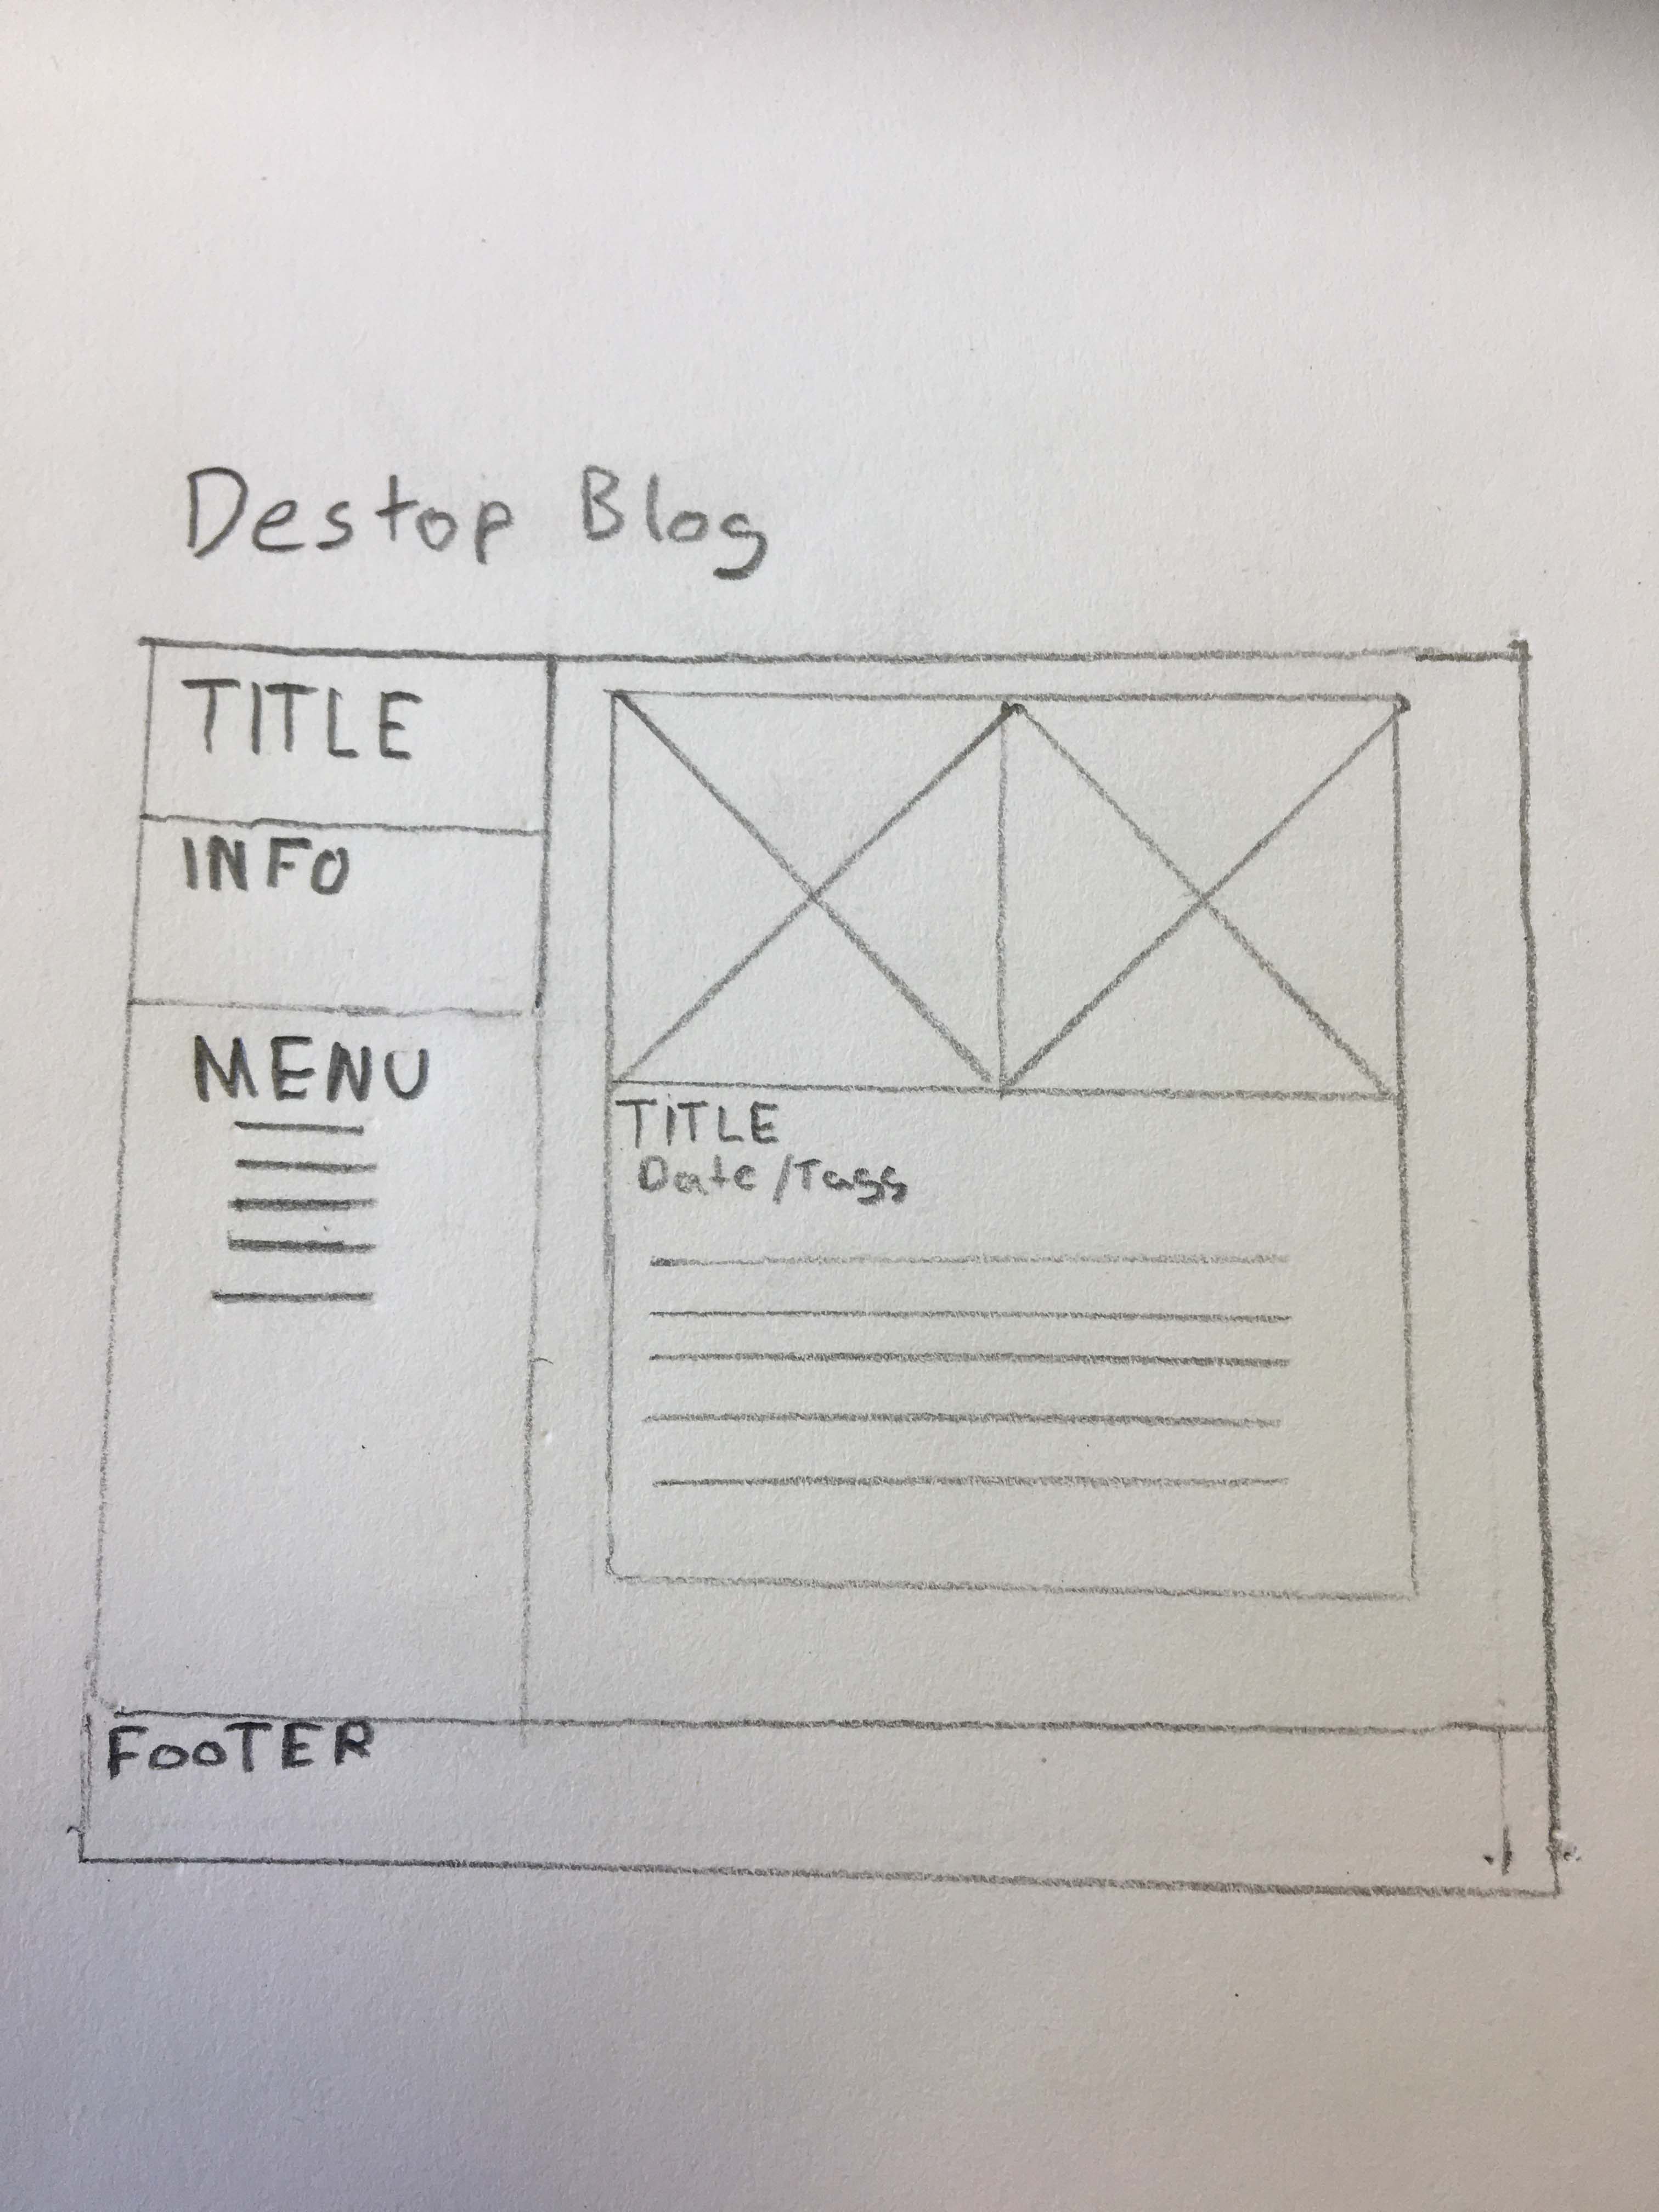 Destop Blog
TITLE
INFO
MENU
TITLE
Date/Tags
FOOTER